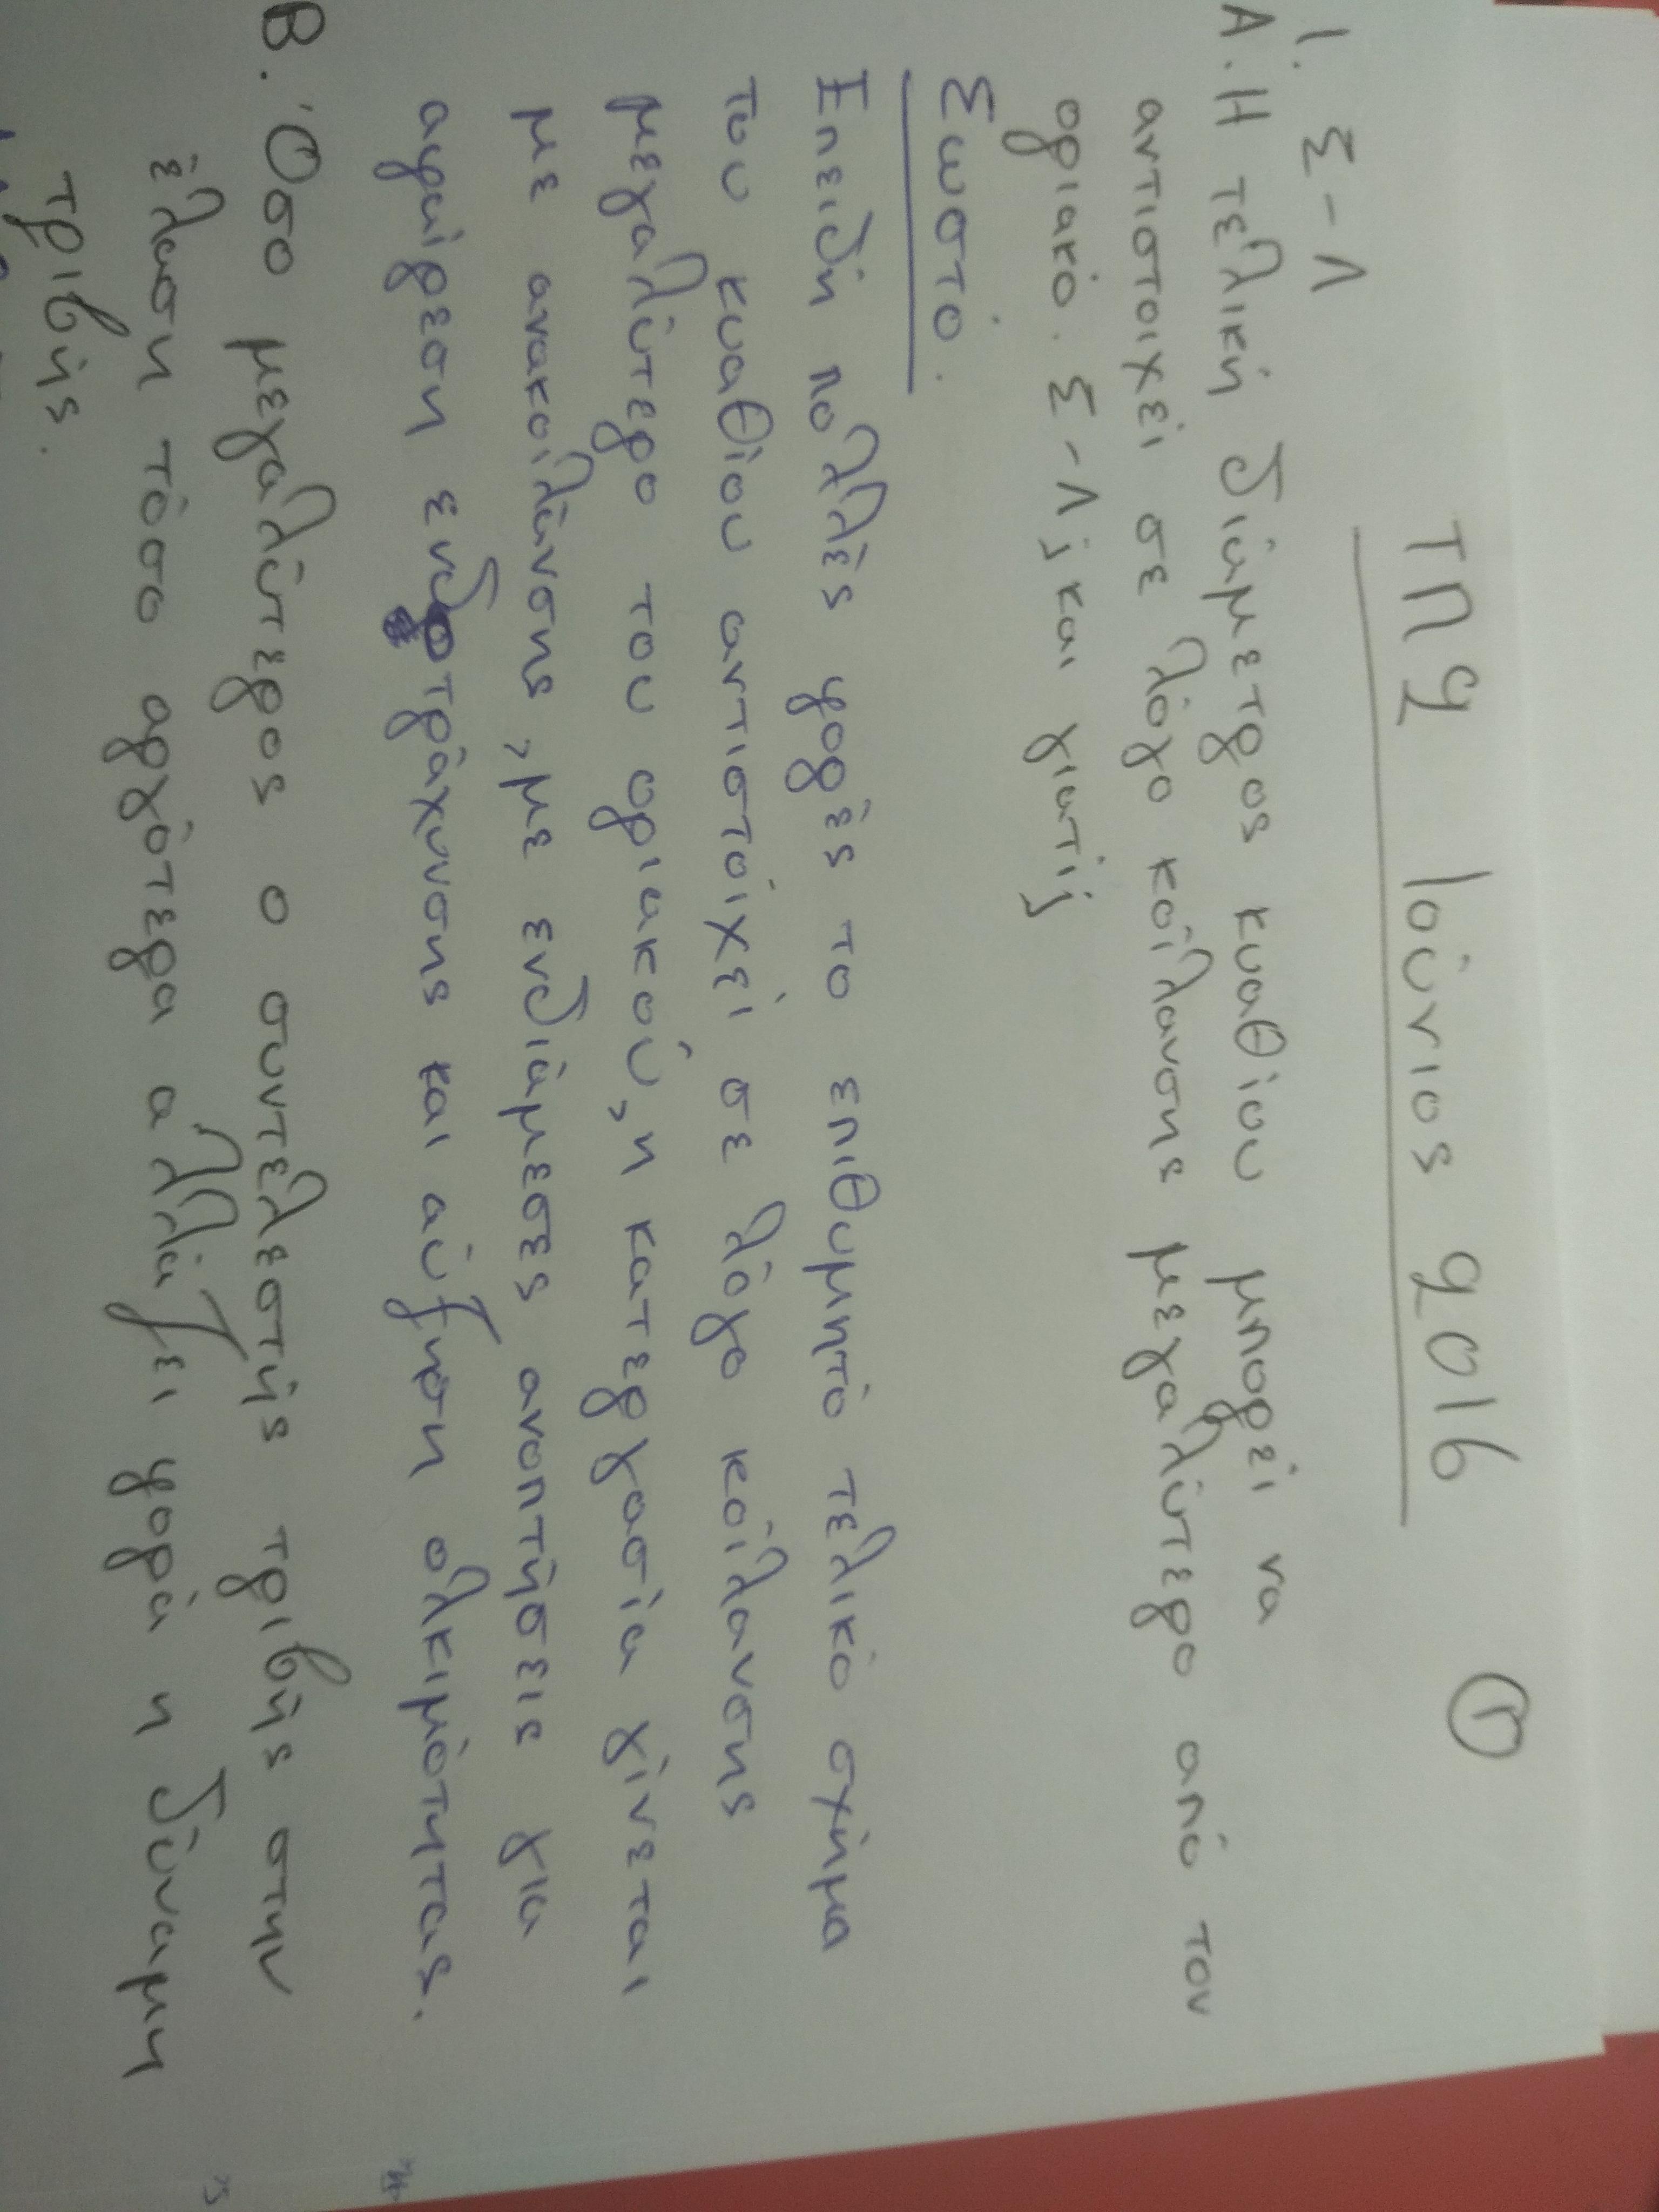 ΤΠ2 Ιούνιος 2016
1
1. Σ-Λ
Α. Η τελική διάμετρος κυαθίου μπορεί να
αντιστοιχεί σε λόγο κοίλανσης μεγαλύτερο από τον
οριακό. Σ-Λ; και γιατί;
Σωστό.
Επειδή πολλές φορές το επιθυμητό τελικό σχήμα
του κυαθίου αντιστοίχεί σε λόγο κοίλανσης
μεγαλύτερο του οριακού, η κατεργασία γίνεται
με ανακοιλάνσης, με ενδιάμεσες ανοπτήσεις για
αφαίρεση ενδοτράχυνσης και αύξηση ολκιμότητας.
Β. Όσο μεγαλύτερος ο συντελεστής τριβής στην
έλαση τόσο αργότερα αλλάζει φορά η δύναμη
τριβής.